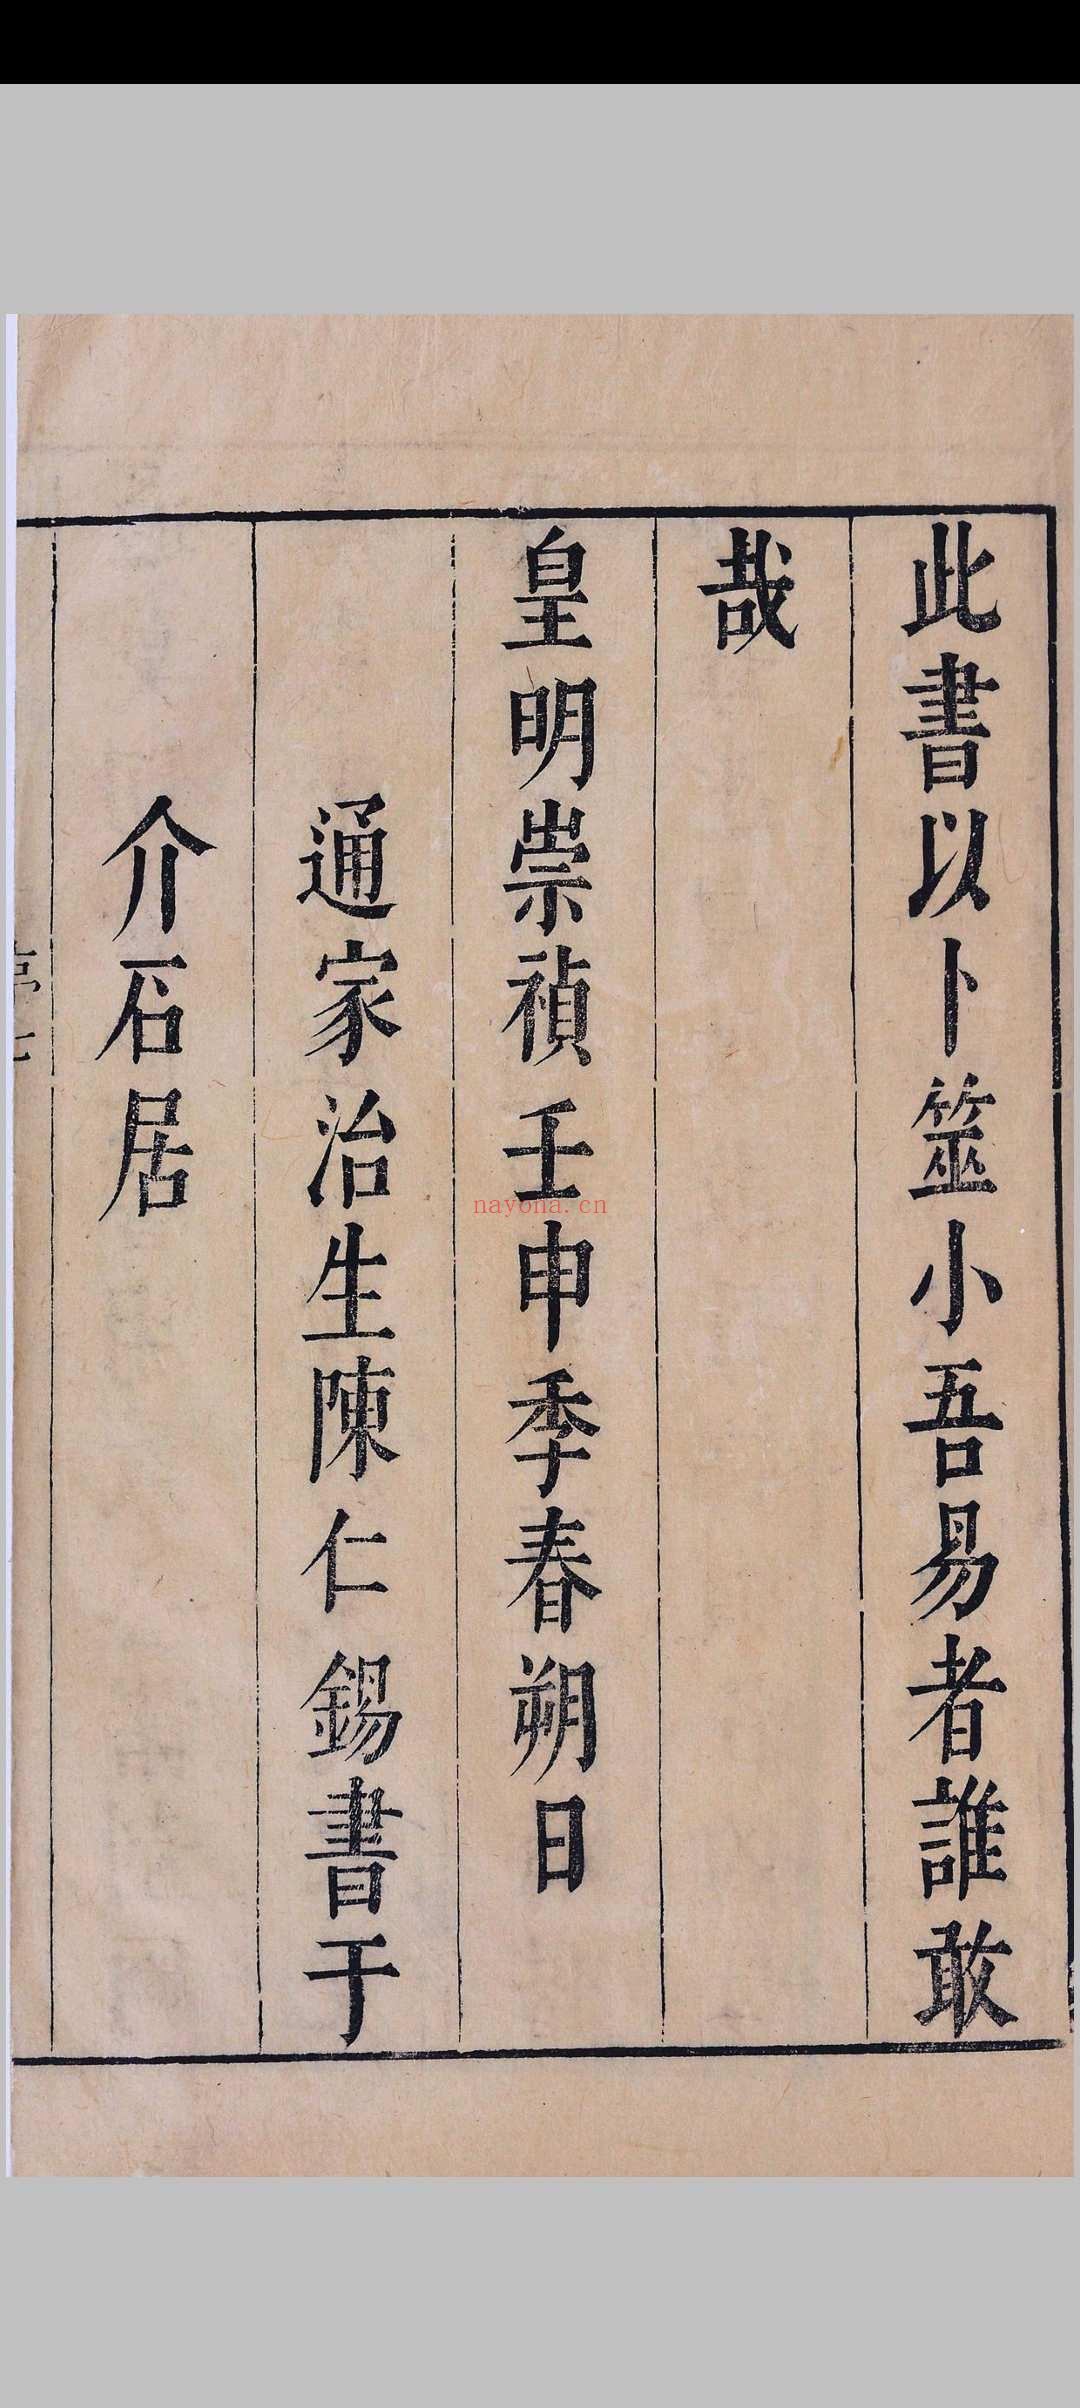 此書以卜筮小吾易者誰敢
哉
皇明崇禎壬申季春朔日
通家治生陳仁錫書于
介石居
序七
nayona.cn